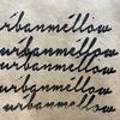 urbanmellow
urbanmellow
urbanmellow
urbanmellow
urbanmellow